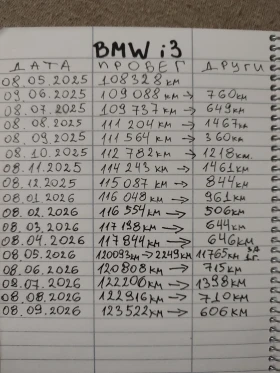 BMW i3
ДАТА ПРОБЕГ ДРУГИ
08.05.2025 108328 км
09.06.2025 109088 км → 760 км
08.07.2025 109737 км → 649 км
08.08.2025 111204 км → 1467 км
08.09.2025 111564 км → 360 км
08.10.2025 112782 км → 1218 км
08.11.2025 114243 км → 1461 км
08.12.2025 115087 км → 844 км
08.01.2026 116048 км → 961 км
08.02.2026 116554 км → 506 км
08.03.2026 117198 км → 644 км
08.04.2026 117844 км → 646 км
08.05.2026 120093 км → 2249 км 11765 км за 1г.
08.06.2026 120808 км → 715 км
08.07.2026 122206 км → 1398 км
08.08.2026 122916 км → 710 км
08.09.2026 123522 км → 606 км